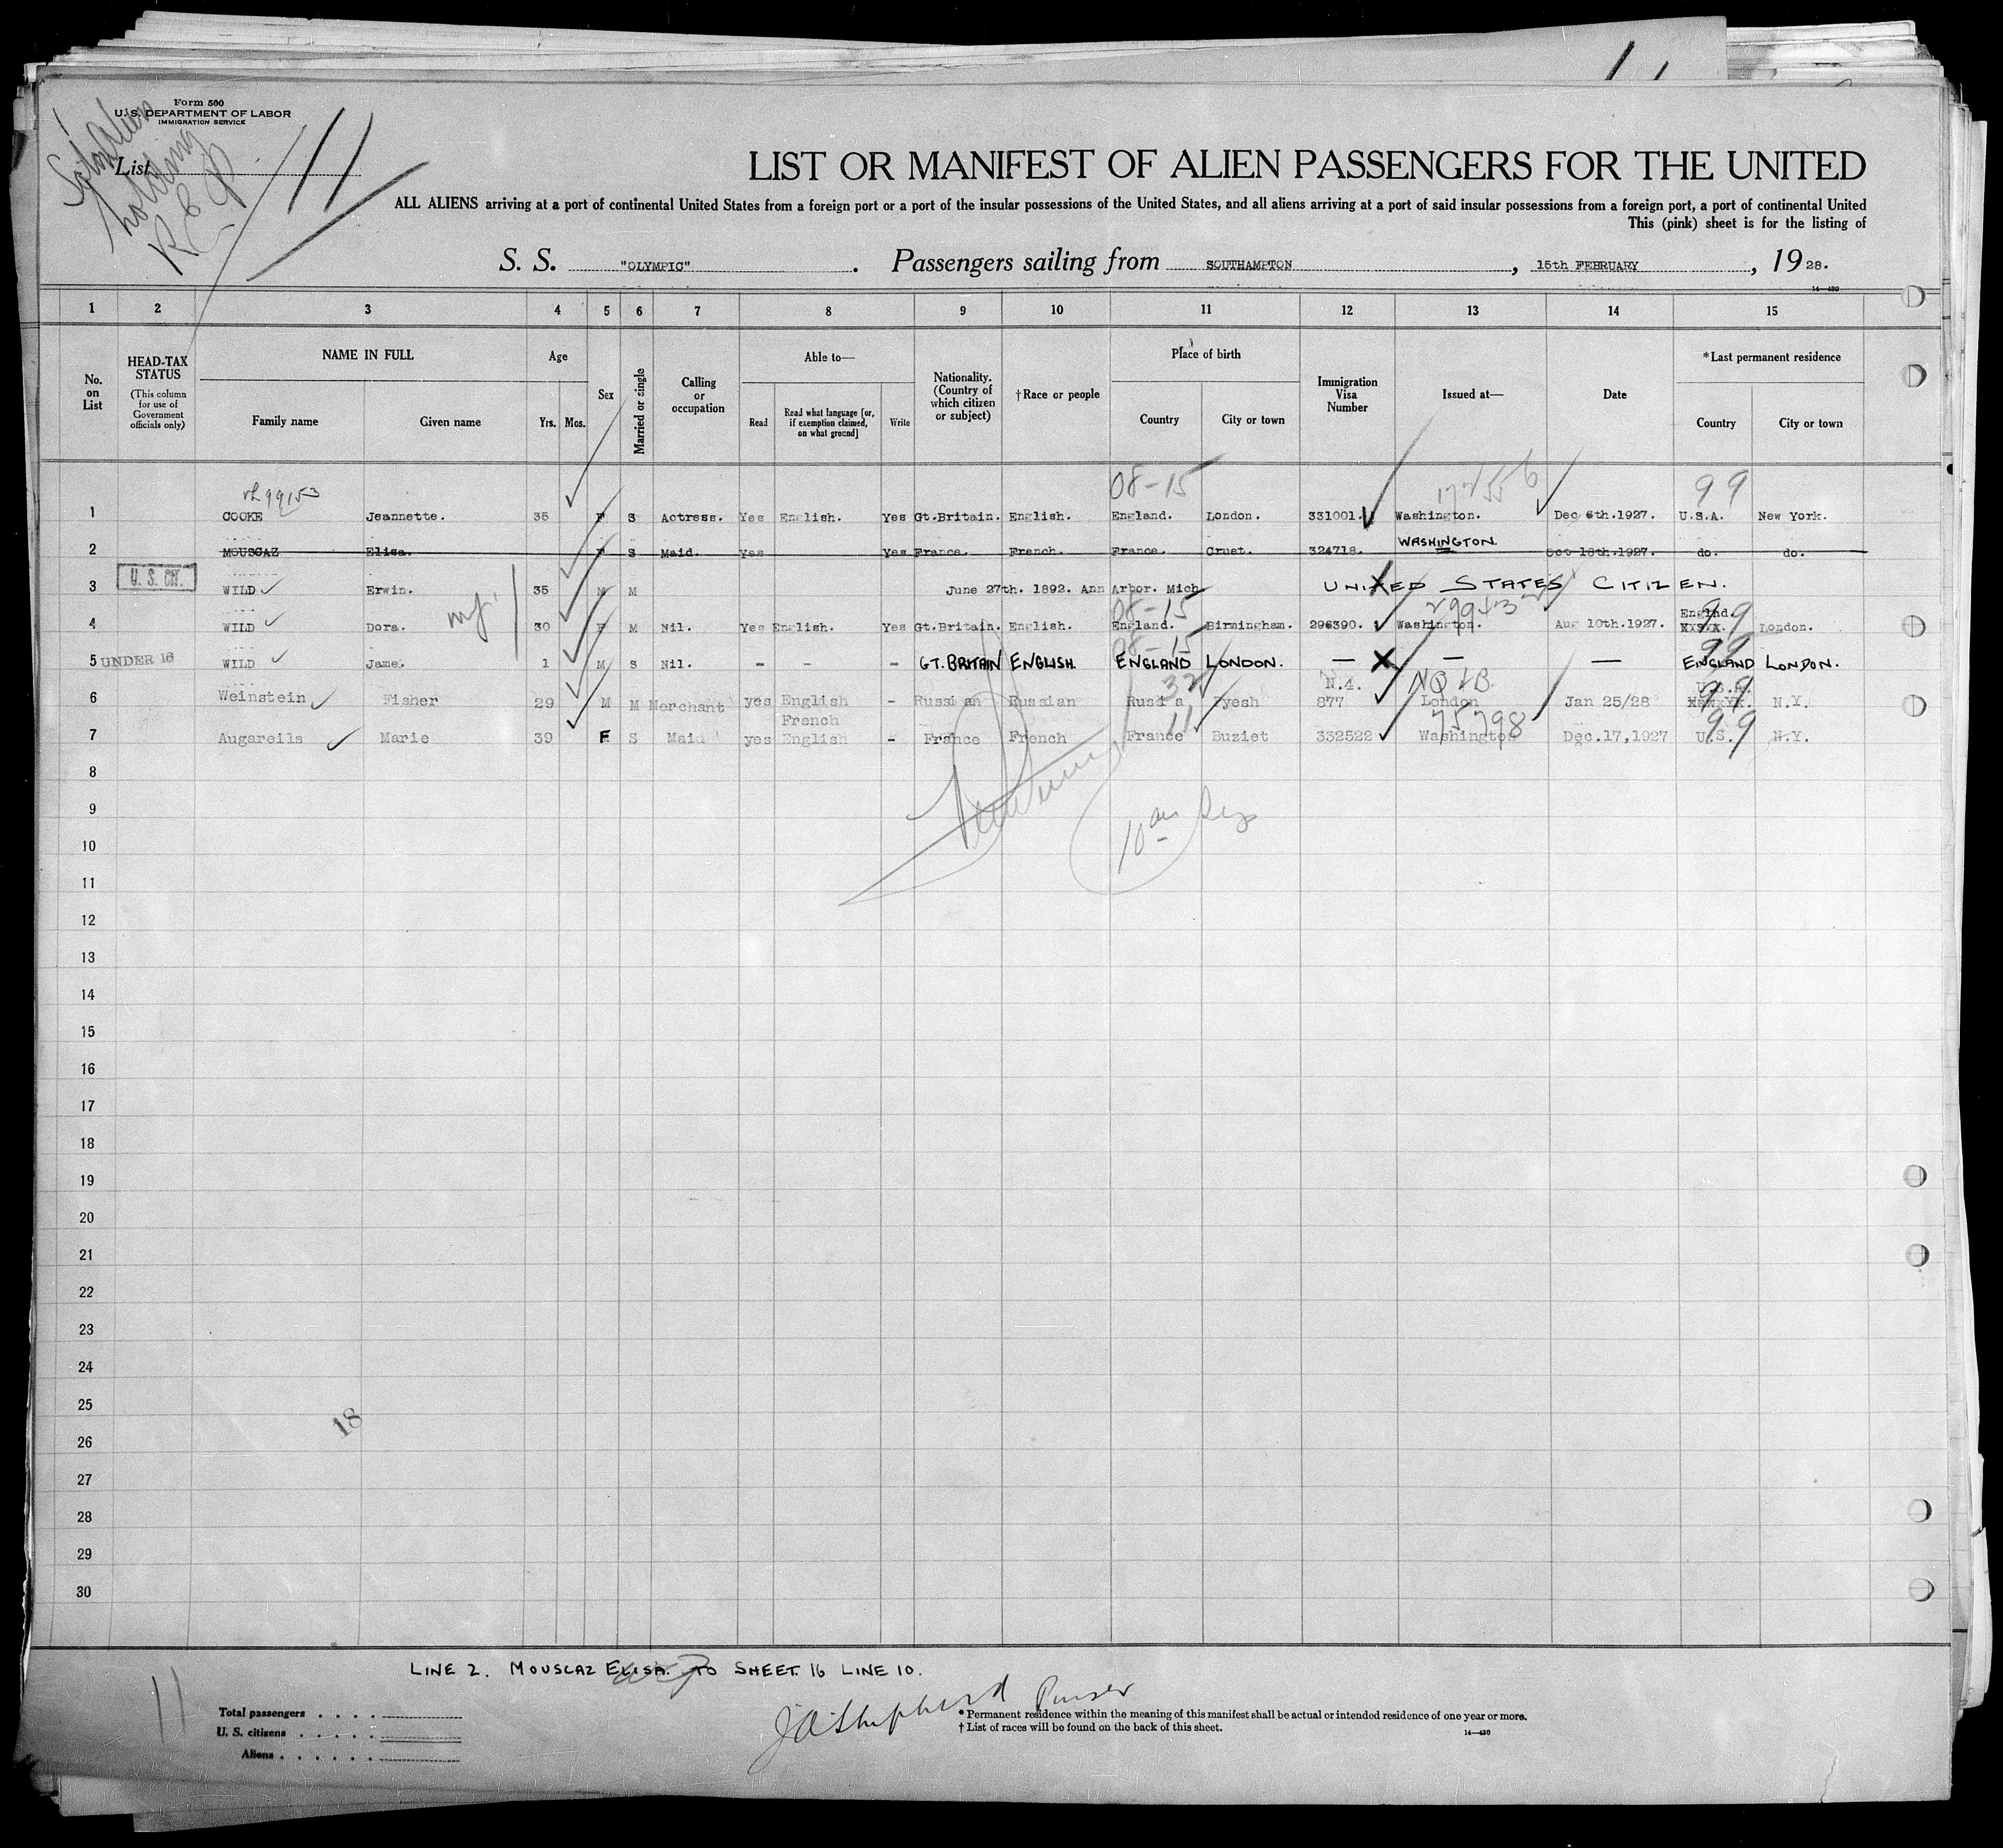 Form 500
U. S. DEPARTMENT OF LABOR
IMMIGRATION SERVICE
holding
List 11
LIST OR MANIFEST OF ALIEN PASSENGERS FOR THE UNITED
ALL ALIENS arriving at a port of continental United States from a foreign port or a port of the insular possessions of the United States, and all aliens arriving at a port of said insular possessions from a foreign port, a port of continental United
This (pink) sheet is for the listing of
S. S. "OLYMPIC". Passengers sailing from SOUTHAMPTON, 15th FEBRUARY, 19 28.
14—430
1 2 3 4 5 6 7 8 9 10 11 12 13 14 15
No. on List
HEAD-TAX STATUS
(This column for use of Government officials only)
NAME IN FULL
Family name Given name
Age
Yrs. Mos.
Sex
Married or single
Calling or occupation
Able to—
Read
Read what language [or, if exemption claimed, on what ground]
Write
Nationality. (Country of which citizen or subject)
†Race or people
Place of birth
Country City or town
Immigration Visa Number
Issued at—
Date
*Last permanent residence
Country City or town
99153 08-15 99
1 COOKE Jeannette. 35 F S Actress. Yes English. Yes Gt.Britain. English. England. London. 331001. Washington. Dec 6th.1927. U.S.A. New York.
WASHINGTON.
2 MOUSCAZ Elisa. F S Maid. Yes Yes France. French. France. Cruet. 324718. Oct 18th.1927. do. do.
U. S. CIT.
3 WILD Erwin. 35 M M June 27th. 1892. Ann Arbor. Mich UNITED STATES CITIZEN.
08-15 99
4 WILD Dora. 30 F M Nil. Yes English. Yes Gt.Britain. English. England. Birmingham. 296390. Washington. Aug 10th.1927. Englnd. London.
08-15 99
5 UNDER 16 WILD James. 1 M S Nil. - - - GT. BRITAIN ENGLISH. ENGLAND LONDON. — — — ENGLAND LONDON.
32 N.4. NQIB. 99
6 Weinstein Fisher 29 M M Merchant yes English - Russian Russian Russia 877 London Jan 25/28 N.Y.
French 11 75798 99
7 Augareils Marie 39 F S Maid yes English - France French France Buziet 332522 Washington Dec.17,1927 U.S. N.Y.
8
9
10
11
12
13
14
15
16
17
18
19
20
21
22
23
24
25
18
26
27
28
29
30
LINE 2. MOUSCAZ ELISA. TO SHEET. 16 LINE 10.
11
Total passengers . . . .
U. S. citizens . . . . .
Aliens . . . . . .
J A Shepherd Purser
* Permanent residence within the meaning of this manifest shall be actual or intended residence of one year or more.
† List of races will be found on the back of this sheet.
14—430